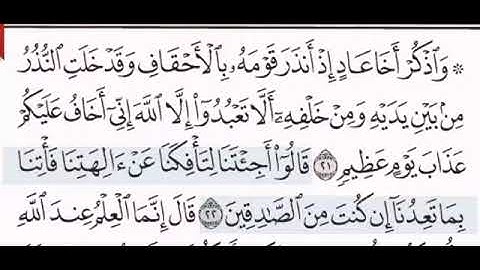 ۞ وَٱذۡكُرۡ أَخَا عَادٍ إِذۡ أَنذَرَ قَوۡمَهُۥ بِٱلۡأَحۡقَافِ وَقَدۡ خَلَتِ ٱلنُّذُرُ
مِنۢ بَيۡنِ يَدَيۡهِ وَمِنۡ خَلۡفِهِۦٓ أَلَّا تَعۡبُدُوٓاْ إِلَّا ٱللَّهَ إِنِّيٓ أَخَافُ عَلَيۡكُمۡ
عَذَابَ يَوۡمٍ عَظِيمٖ ٢١ قَالُوٓاْ أَجِئۡتَنَا لِتَأۡفِكَنَا عَنۡ ءَالِهَتِنَا فَأۡتِنَا
بِمَا تَعِدُنَآ إِن كُنتَ مِنَ ٱلصَّٰدِقِينَ ٢٢ قَالَ إِنَّمَا ٱلۡعِلۡمُ عِندَ ٱللَّهِ